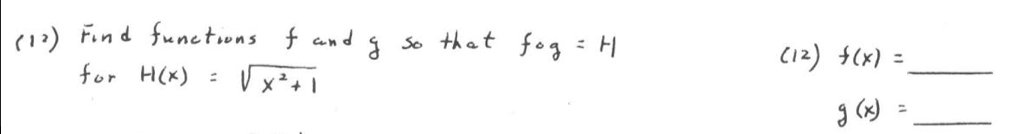 (12) Find functions f and g so that f∘g = H
for H(x) = √x²+1
(12) f(x) = ______
g(x) = ______